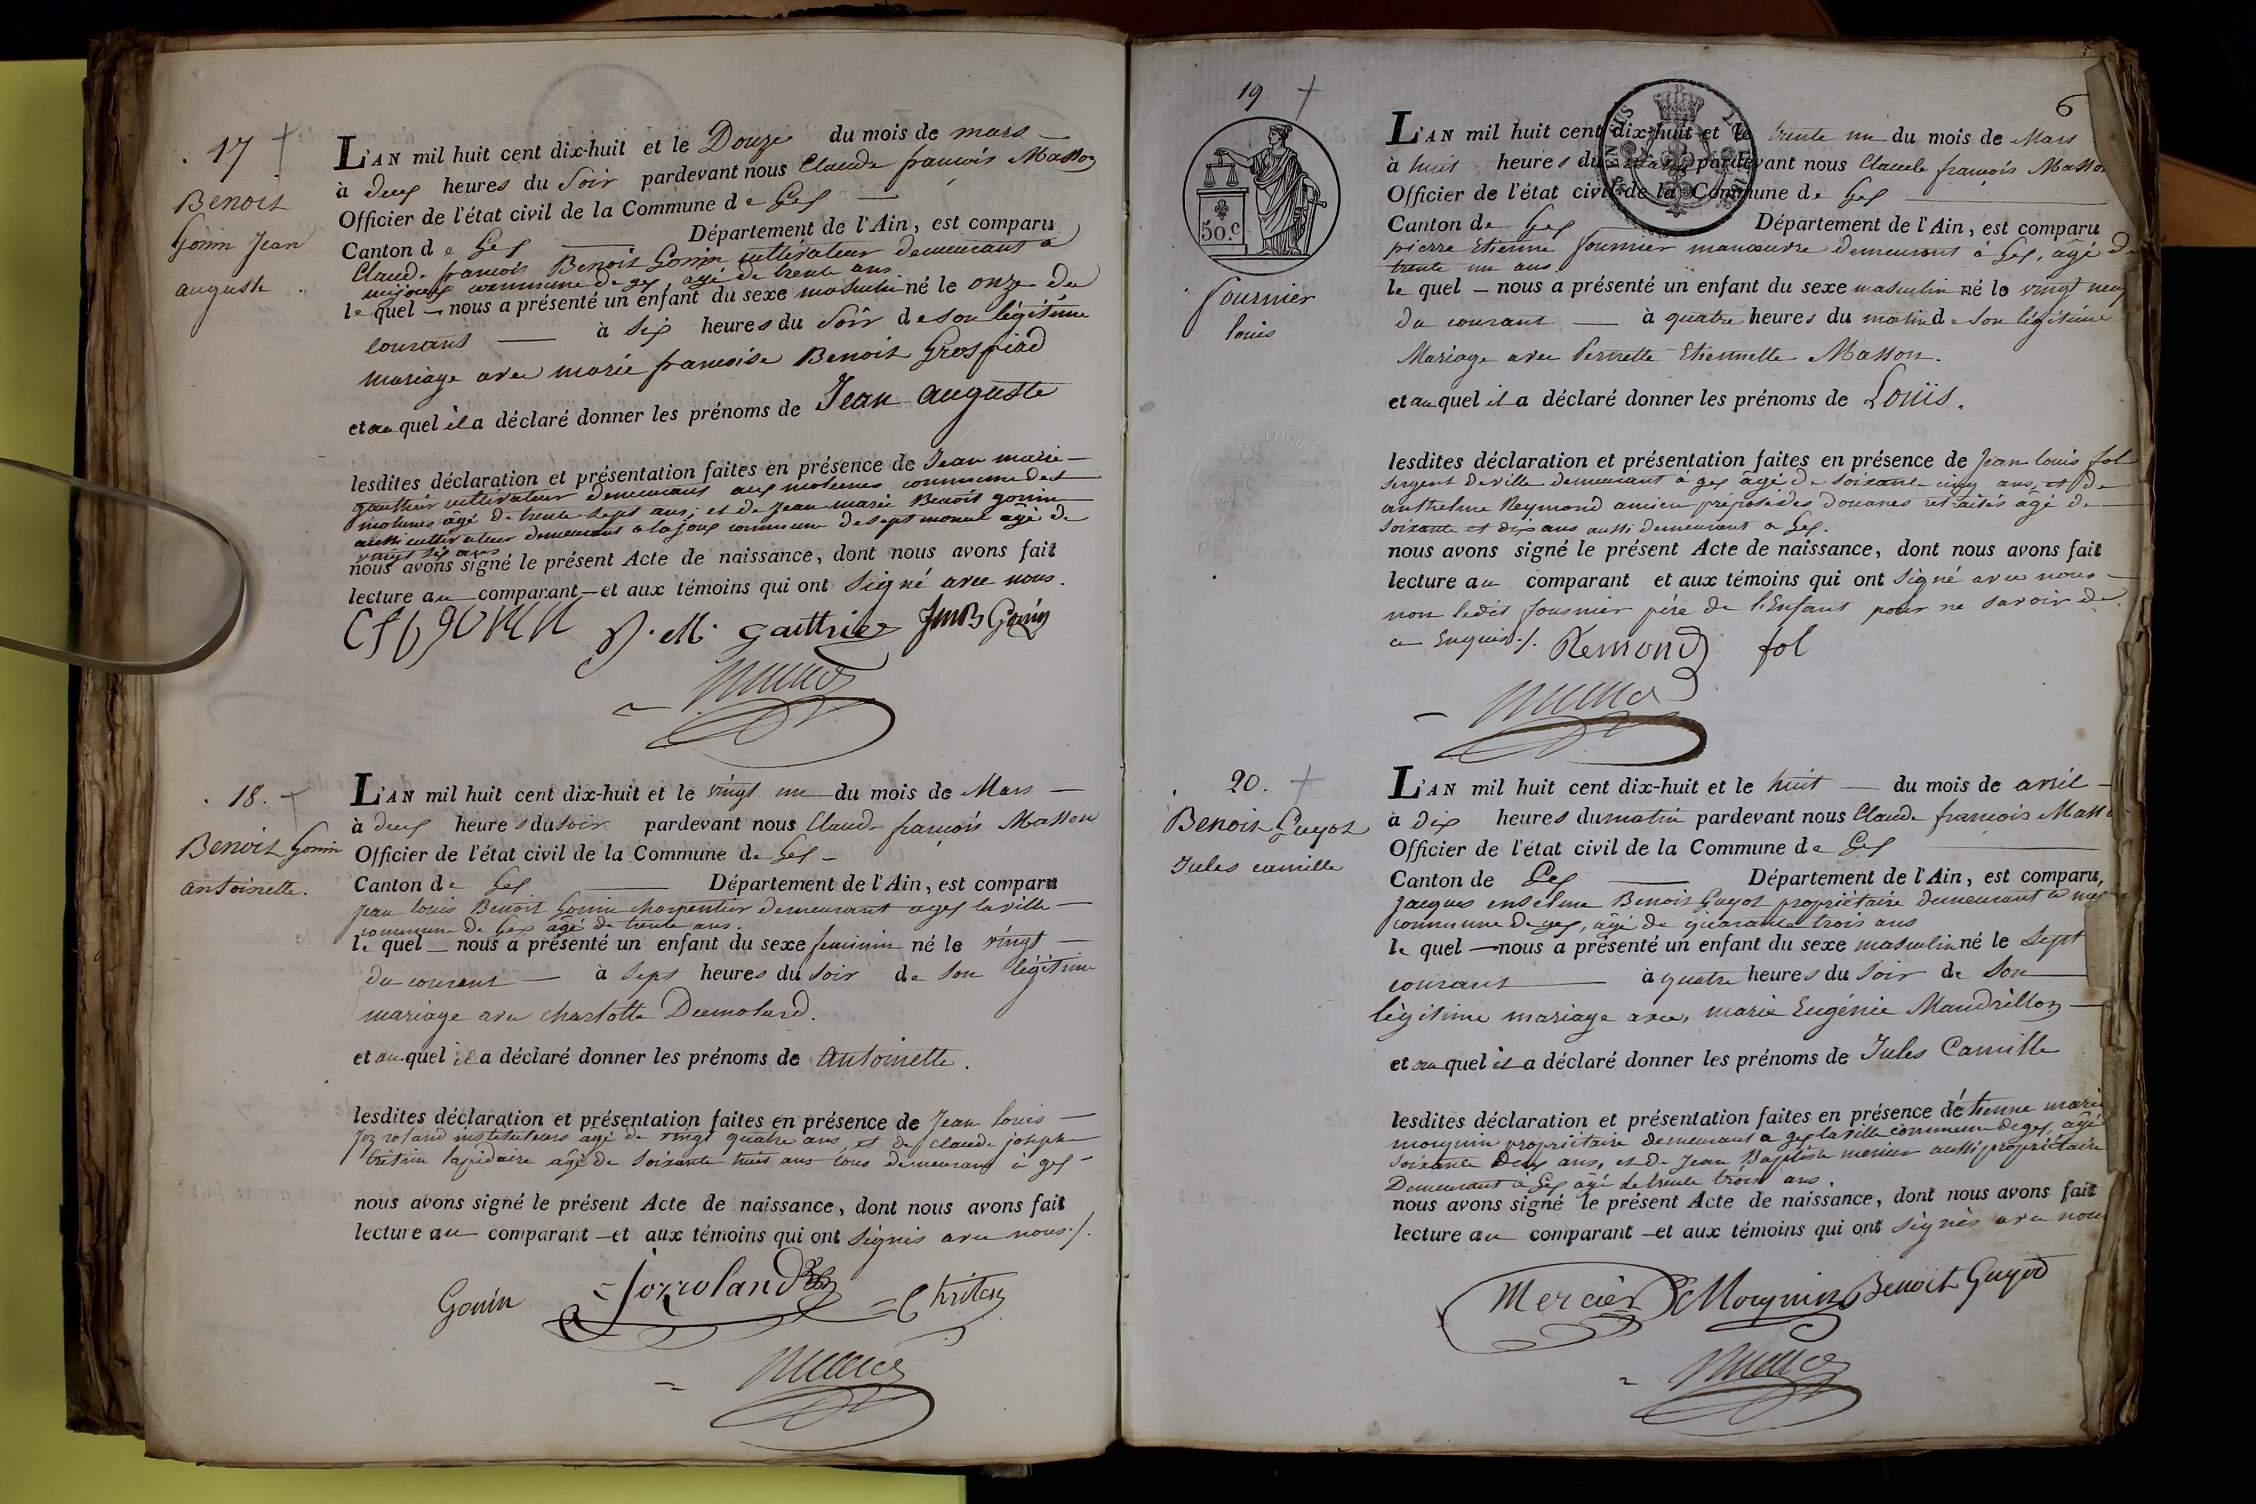 17
Benoit
Gonin Jean
auguste
L'AN mil huit cent dix-huit et le Douze du mois de mars
à deux heures du Soir pardevant nous Claude françois Masson
Officier de l'état civil de la Commune de Gex
Canton de Gex Département de l'Ain, est comparu
Claude françois Benoit Gonin cultivateur demeurant a
commune de gex, agé de trente ans
le quel nous a présenté un enfant du sexe masculin né le onze du
courant à six heures du Soir de son légitime
mariage avec marie françoise Benoit Grospiod
et au quel il a déclaré donner les prénoms de Jean auguste
lesdites déclaration et présentation faites en présence de Jean marie
gauthier cultivateur demeurant aux molunes commune des
molunes âgé de trente sept ans, et de Jean marie Benoit gonin
aussi cultivateur demeurant a la joux commune de septmoncel âgé de
vingt six ans
nous avons signé le présent Acte de naissance, dont nous avons fait
lecture au comparant et aux témoins qui ont Signé avec nous.
J. M. gauthier JMB Gonin
18.
Benoit Gonin
antoinette.
L'AN mil huit cent dix-huit et le vingt un du mois de Mars
à deux heures du soir pardevant nous Claude françois Masson
Officier de l'état civil de la Commune de Gex
Canton de Gex Département de l'Ain, est comparu
jean louis Benoit Gonin charpentier demeurant a gex la ville
commune de Gex âgé de trente ans.
le quel nous a présenté un enfant du sexe feminin né le vingt
du courant à sept heures du soir de son légitime
mariage avec charlotte Dumolard.
et au quel il a déclaré donner les prénoms de antoinette.
lesdites déclaration et présentation faites en présence de Jean louis
jozroland instituteurs âgé de vingt quatre ans, et de claude joseph
lapidaire âgé de soixante huit ans tous demeurant à gex
nous avons signé le présent Acte de naissance, dont nous avons fait
lecture au comparant et aux témoins qui ont signés avec nous./.
Gonin Jozroland
19
50.c
fournier
louis
6
L'AN mil huit cent dix-huit et le trente un du mois de Mars
à huit heures du matin pardevant nous Claude françois Masson
Officier de l'état civil de la Commune de Gex
Canton de Gex Département de l'Ain, est comparu
pierre Etienne fournier manoeuvre demeurant à Gex, âgé de
trente un ans
le quel nous a présenté un enfant du sexe masculin né le vingt neuf
du courant à quatre heures du matin de son légitime
Mariage avec Pernette Etiennette Masson.
et au quel il a déclaré donner les prénoms de Louïs.
lesdites déclaration et présentation faites en présence de Jean louis fol
sergent de ville demeurant à gex âgé de soixante cinq ans, et de
anthelme Reymond ancien préposé des douanes retraités âgé de
soixante et dix ans aussi demeurant a Gex.
nous avons signé le présent Acte de naissance, dont nous avons fait
lecture au comparant et aux témoins qui ont signé avec nous
non ledit fournier père de l'Enfant pour ne savoir de
ce Enquis./. Remond fol
20.
Benoit Guyot
Jules camille
L'AN mil huit cent dix-huit et le huit du mois de avril
à dix heures du matin pardevant nous Claude françois Masson
Officier de l'état civil de la Commune de Gex
Canton de Gex Département de l'Ain, est comparu,
jacques enselme Benoit Guyot propriétaire demeurant a
commune de gex, âgé de quarante trois ans
le quel nous a présenté un enfant du sexe masculin né le sept
courant à quatre heures du soir de son
légitime mariage avec, marie Eugénie Mandrillon
et au quel il a déclaré donner les prénoms de Jules Camille
lesdites déclaration et présentation faites en présence détienne marie
mougnin propriétaire demeurant a gex la ville commune de gex, âgé
soixante deux ans, et de Jean Baptiste mercier aussi propriétaire
Demeurant à Gex âgé de trente trois ans.
nous avons signé le présent Acte de naissance, dont nous avons fait
lecture au comparant et aux témoins qui ont signés avec nous
Mercier Mougnin Benoit Guyod